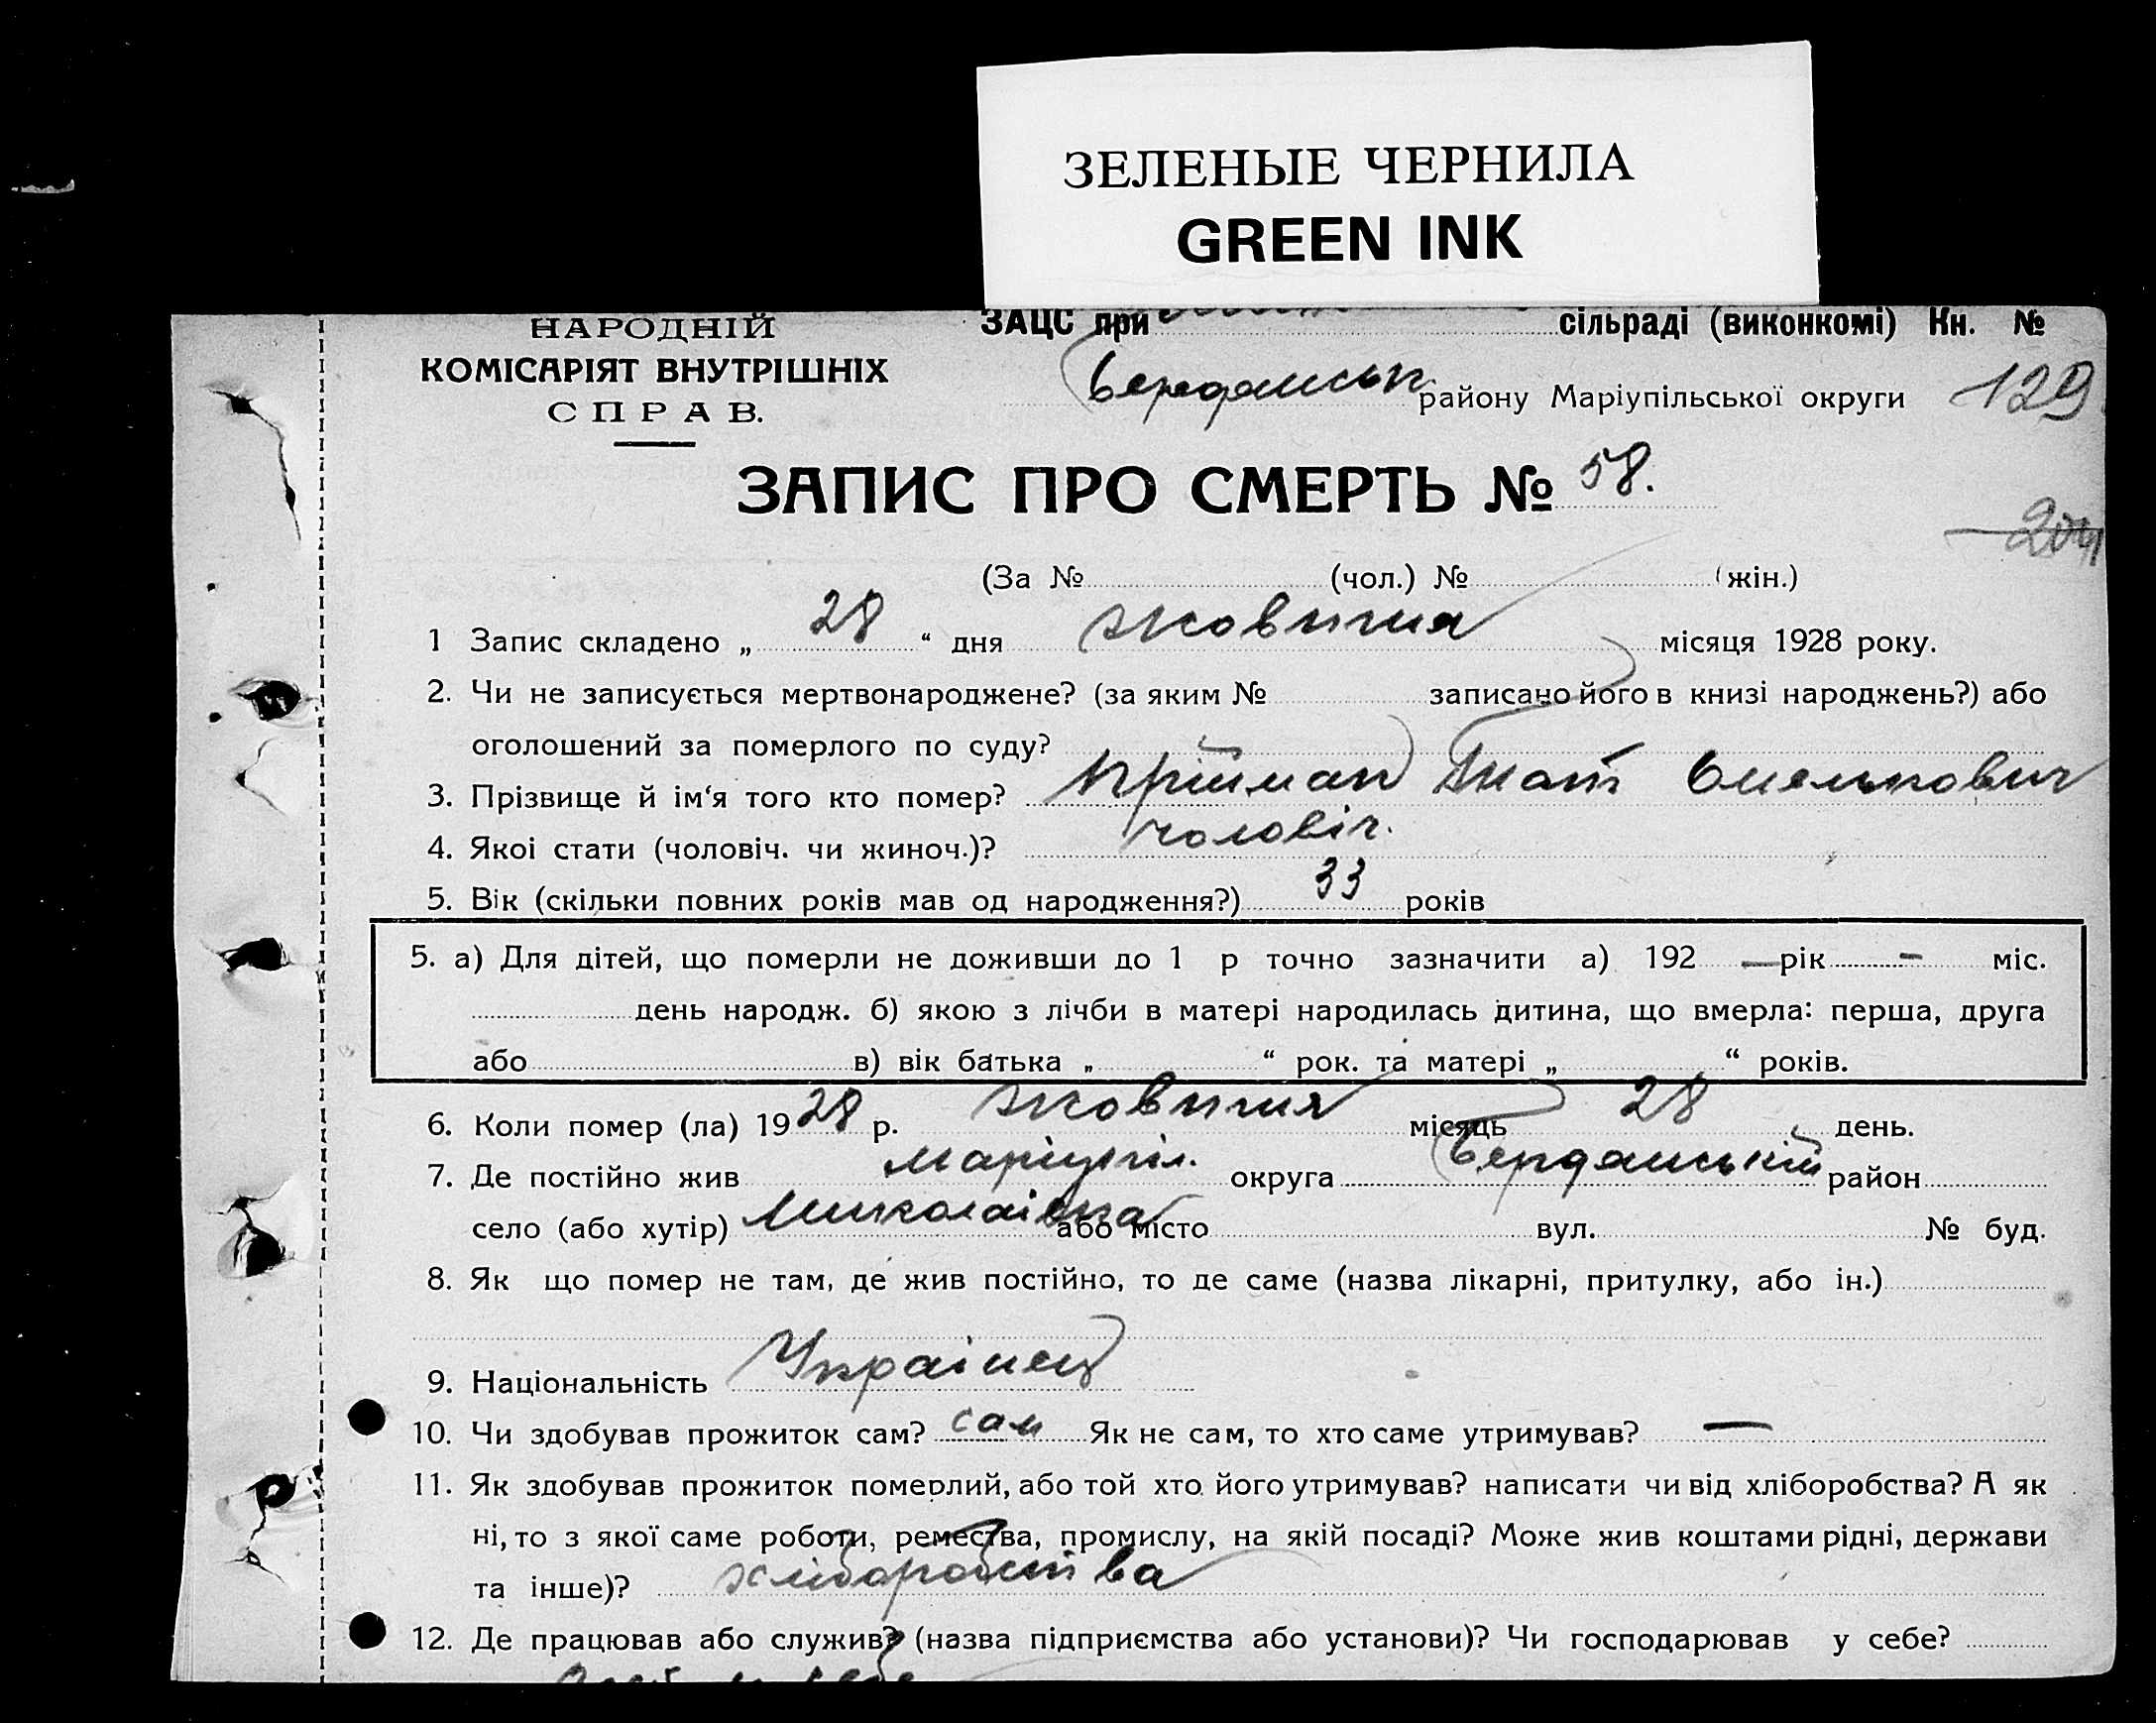 ЗЕЛЕНЫЕ ЧЕРНИЛА
GREEN INK
НАРОДНІЙ
КОМІСАРІЯТ ВНУТРІШНІХ
СПРАВ.
ЗАЦС при сільраді (виконкомі) Кн. №
Бердянськ. району Маріупільської округи 129
ЗАПИС ПРО СМЕРТЬ № 58.
204
(За № (чол.) № (жін.)
1 Запис складено „ 28 “ дня жовтня місяця 1928 року.
2. Чи не записується мертвонароджене? (за яким № записано його в книзі народжень?) або
оголошений за померлого по суду?
3. Прізвище й ім'я того кто помер? Крійман Гнат Омелькович
4. Якоі стати (чоловіч. чи жиноч.)? чоловіч.
5. Вік (скільки повних років мав од народження?) 33 років
5. а) Для дітей, що померли не доживши до 1 р точно зазначити а) 192 — рік - міс.
день народж. б) якою з лічби в матері народилась дитина, що вмерла: перша, друга
або в) вік батька „ “ рок. та матері „ “ років.
6. Коли помер (ла) 1928 р. жовтня місяць 28 день.
7. Де постійно жив Маріупіл. округа Бердянський район
село (або хутір) Миколаівка або місто вул. № буд.
8. Як що помер не там, де жив постійно, то де саме (назва лікарні, притулку, або ін.)
9. Національність Украінец
10. Чи здобував прожиток сам? сам Як не сам, то хто саме утримував? —
11. Як здобував прожиток померлий, або той хто його утримував? написати чи від хліборобства? А як
ні, то з якої саме роботи, ремества, промислу, на якій посаді? Може жив коштами рідні, держави
та інше)? хліборобства
12. Де працював або служив? (назва підприємства або установи)? Чи господарював у себе?